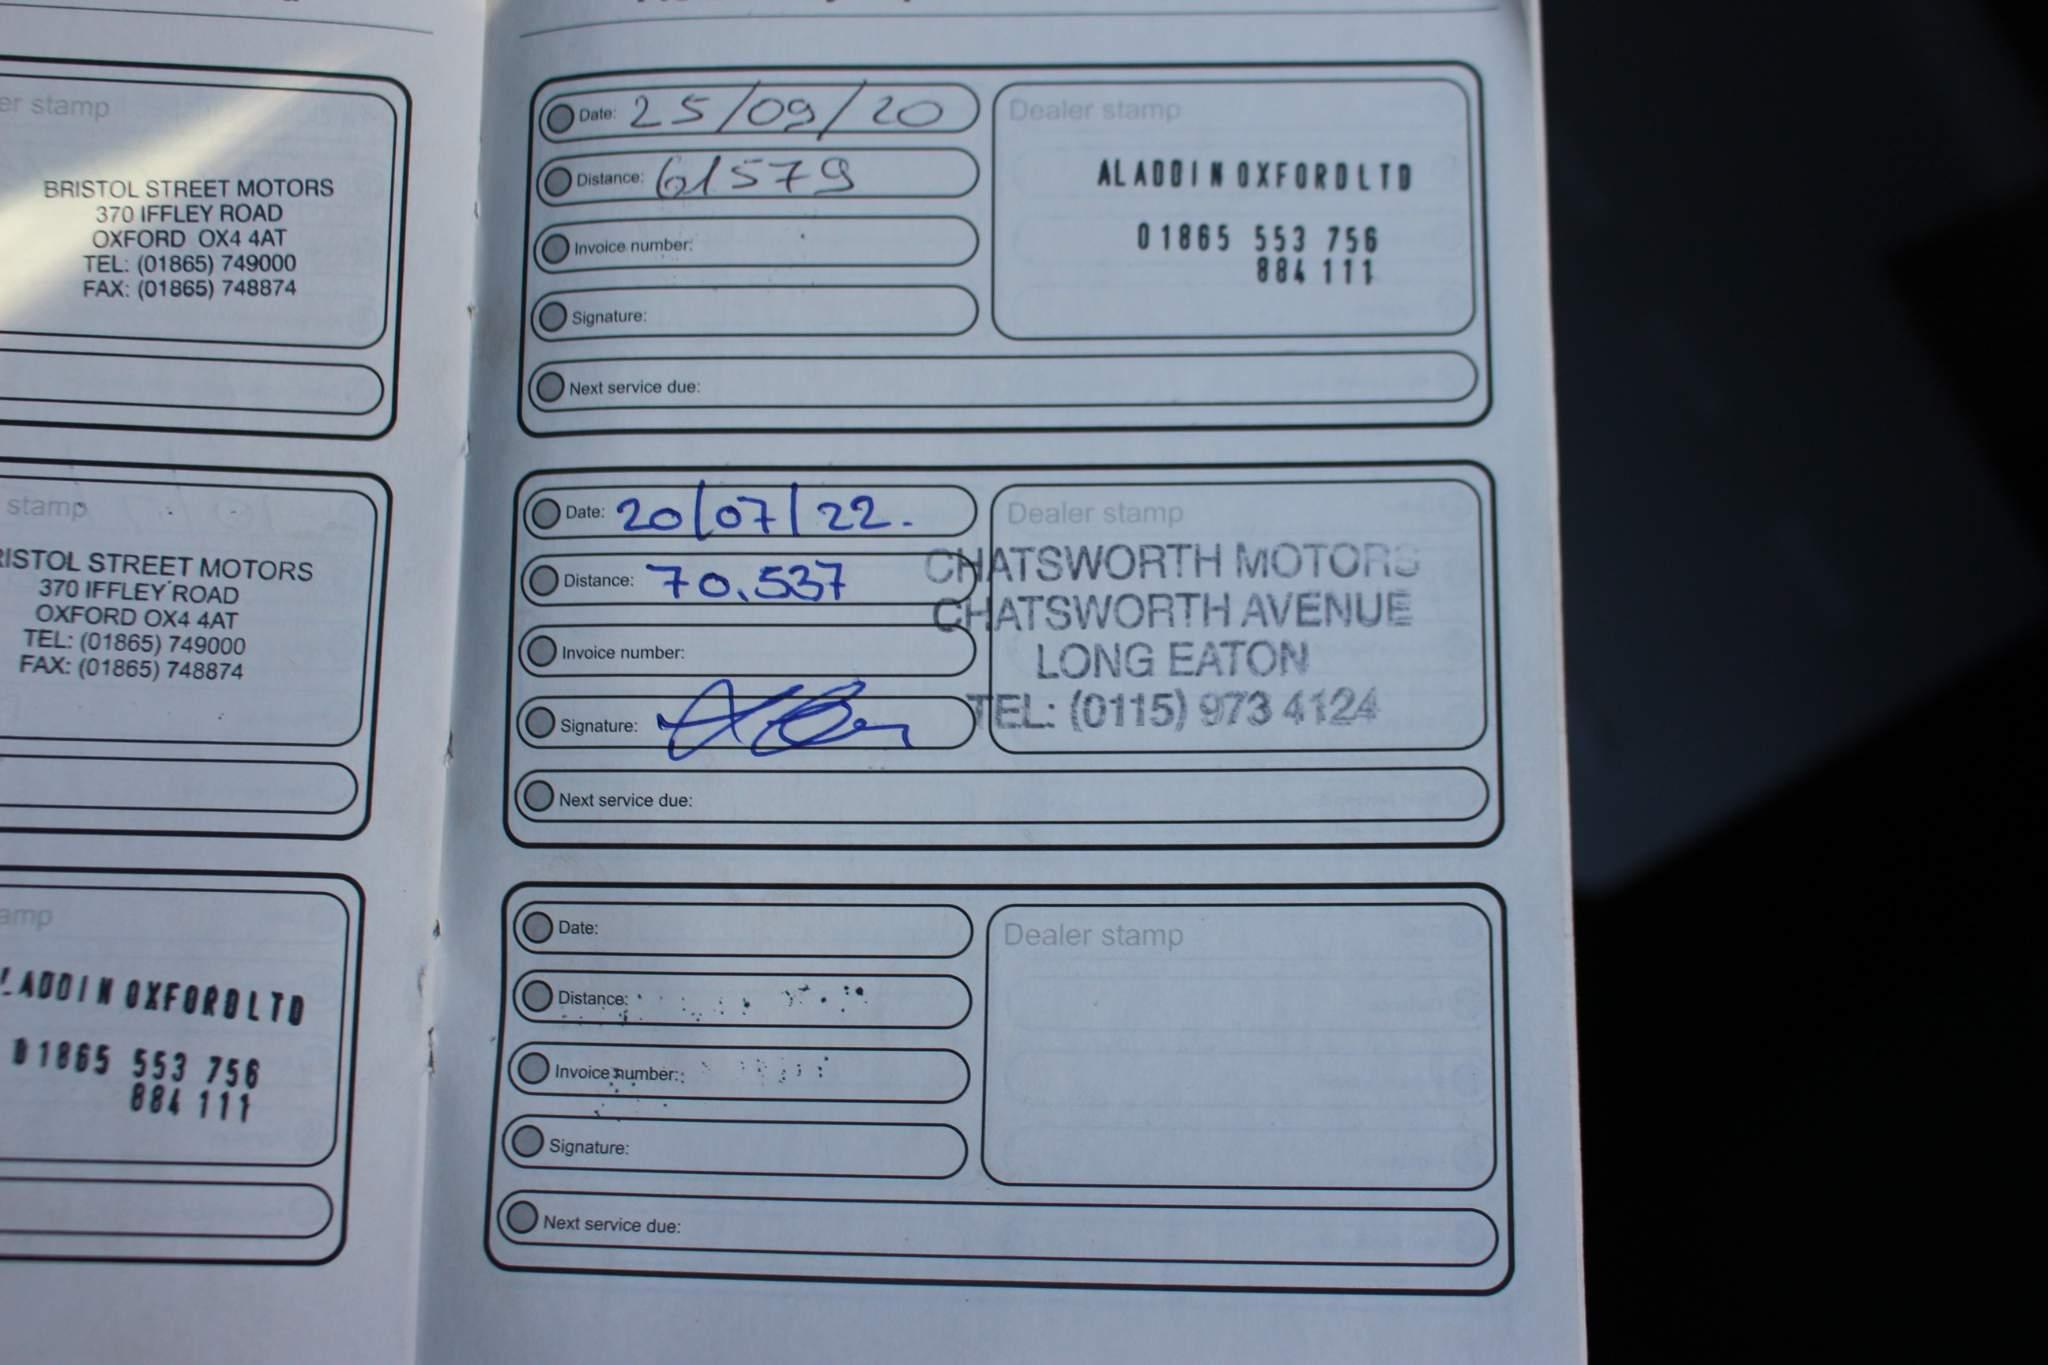 er stamp
BRISTOL STREET MOTORS
370 IFFLEY ROAD
OXFORD OX4 4AT
TEL: (01865) 749000
FAX: (01865) 748874
stamp
RISTOL STREET MOTORS
370 IFFLEY ROAD
OXFORD OX4 4AT
TEL: (01865) 749000
FAX: (01865) 748874
amp
LADDIN OXFORD LTD
01865 553 756
884 111
Date: 25/09/20
Distance: 61579
Invoice number:
Signature:
Next service due:
Dealer stamp
ALADDIN OXFORD LTD
01865 553 756
884 111
Date: 20/07/22.
Distance: 70.537
Invoice number:
Signature:
Next service due:
Dealer stamp
CHATSWORTH MOTORS
CHATSWORTH AVENUE
LONG EATON
TEL: (0115) 973 4124
Date:
Distance:
Invoice number:
Signature:
Next service due:
Dealer stamp